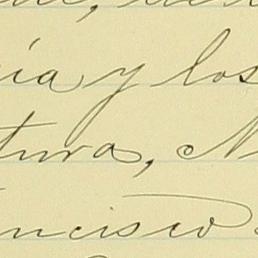 ía y los
tura, N
ncisco